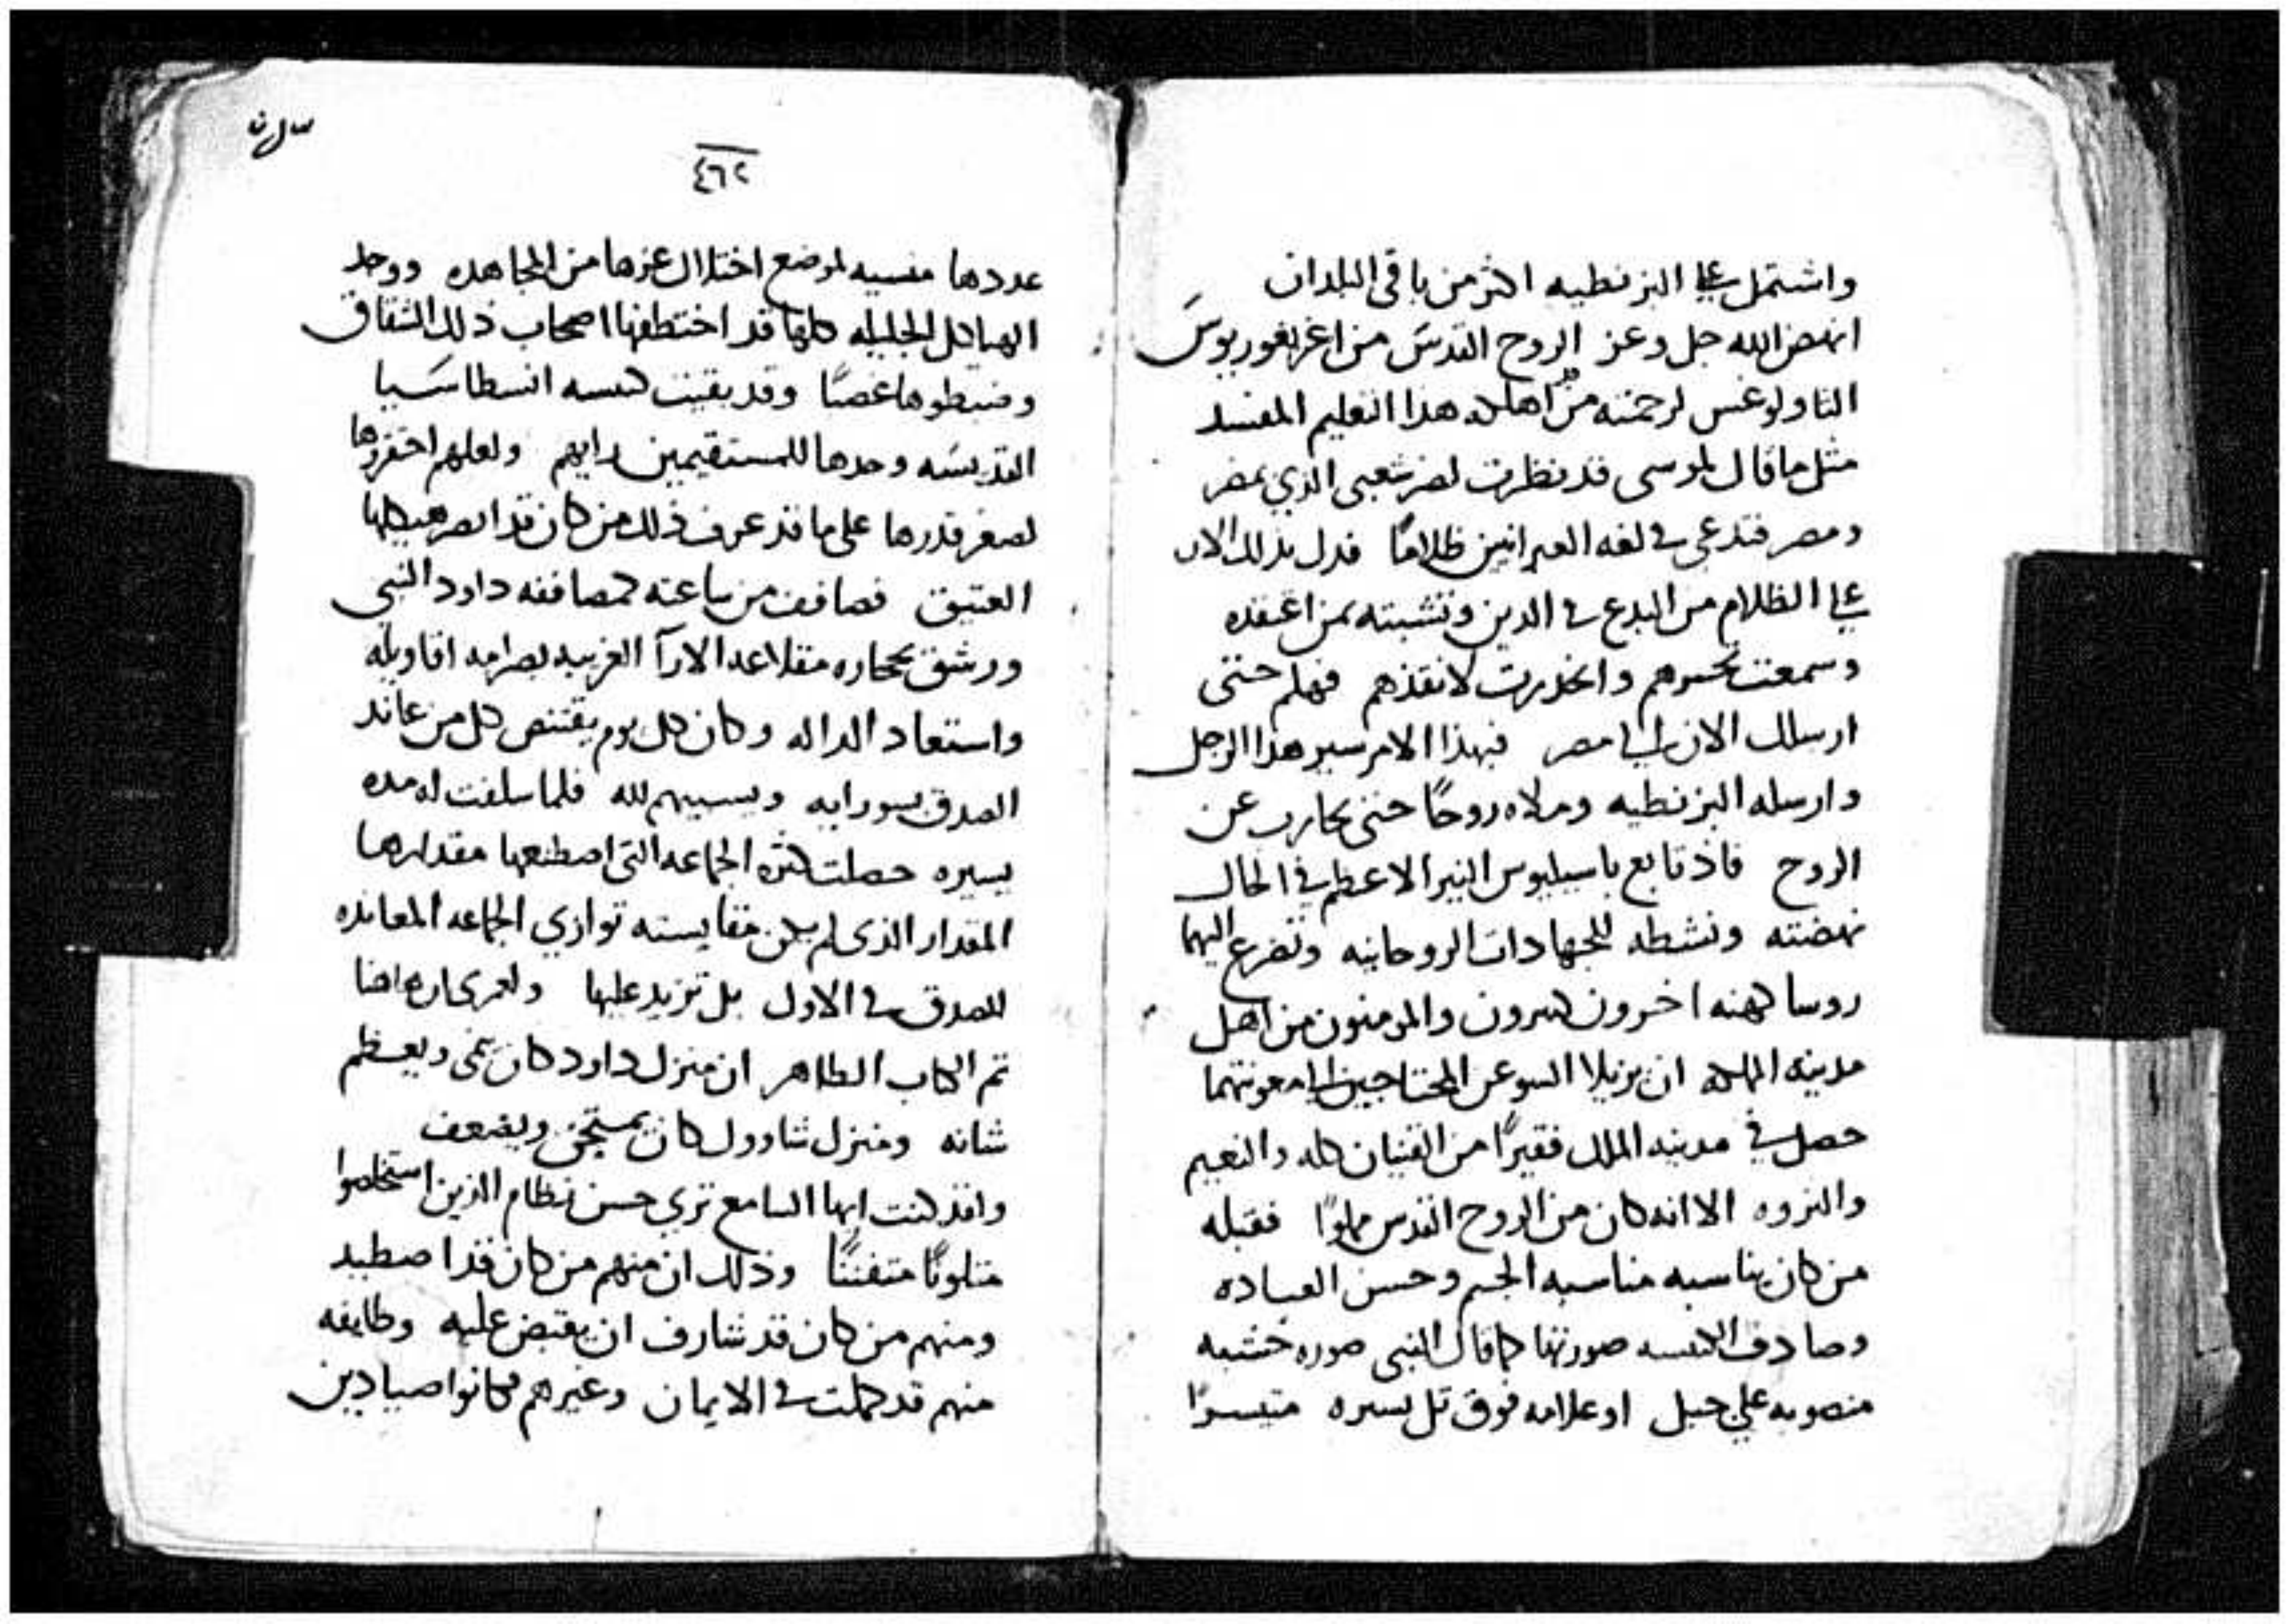 واشتمل على البزنطيه اكثر من باقى البلدان
انهض الله جل وعز الروح القدس من اغريغوريوس
الثاولوغس لرحمته من اهلكه هذا التعليم المفسد
مثل ما قال لموسى قد نظرت لضر شعبى الذي بمصر
ومصر فتدعى في لغه العبرانيين ظلامًا فدل بذلك الان
على الظلام من البدع في الدين وتشبته بمن اعتقده
وسمعت تحسرهم وانحدرت لانقذهم فهلم حتى
ارسلك الان الى مصر فبهذا الامر سير هذا الرجل
وارسله البزنطيه وملاه روحًا حتى يحارب عن
الروح فاذ تابع باسيليوس النير الاعظم في الحال
نهضته ونشطه للجهادات الروحانيه وتضرع اليهما
روسا كهنه اخرون كثيرون والمومنون من اهل
مدينه الملك ان يزيلا السو عن المحتاجين الى معونتهما
حصل في مدينه الملك فقيرًا من القنيان كله والنعيم
والثروه الا انه كان من الروح القدس مملوًا فقبله
من كان يناسبه مناسبه الجسم وحسن العباده
وصادف الكنيسه صورتها كما قال النبى صوره خشبه
منصوبه على جبل او علامه فوق تل يسيره متيسرًا
٤٦٢
عددها منسيه لموضع اختلال عزها من المجاهده ووجد
الهياكل الجليله كلها قد اختطفها اصحاب ذلك الشقاق
وضبطوها غصبًا وقد بقيت كنيسه انسطاسيا
القديسه وحدها للمستقيمين رايهم ولعلهم احتقروها
لصغر قدرها على ما قد عرف ذلك من كان قد ابصر هيكلها
العتيق فصافف من ساعته كمصاففه داود النبى
ورشق بحجاره مقلاعه الارآ الغريبه بصرامه اقاويله
واستعاد الداله وكان كل يوم يقتنص كل من عاند
الصدق بسو رايه ويسبيهم لله فلما سلفت له مده
يسيره حصلت كثره الجماعه التى اصطنعها مقدارها
المقدار الذى لم يكن مقايسته توازي الجماعه المعانده
للصدق في الاول بل تزيد عليها ولعمرى ان هاهنا
تم الكتاب الطاهر ان منزل داود كان ينمى ويعظم
شانه ومنزل شاوول كان يمتحق ويضعف
واقد كنت ايها السامع تري حسن نظام الذين استخلصوا
متلونًا متفننًا وذلك ان منهم من كان قد اصطيد
ومنهم من كان قد شارف ان يقبض عليه وطايفه
منهم قد كملت في الايمان وغيرهم كانوا صيادين